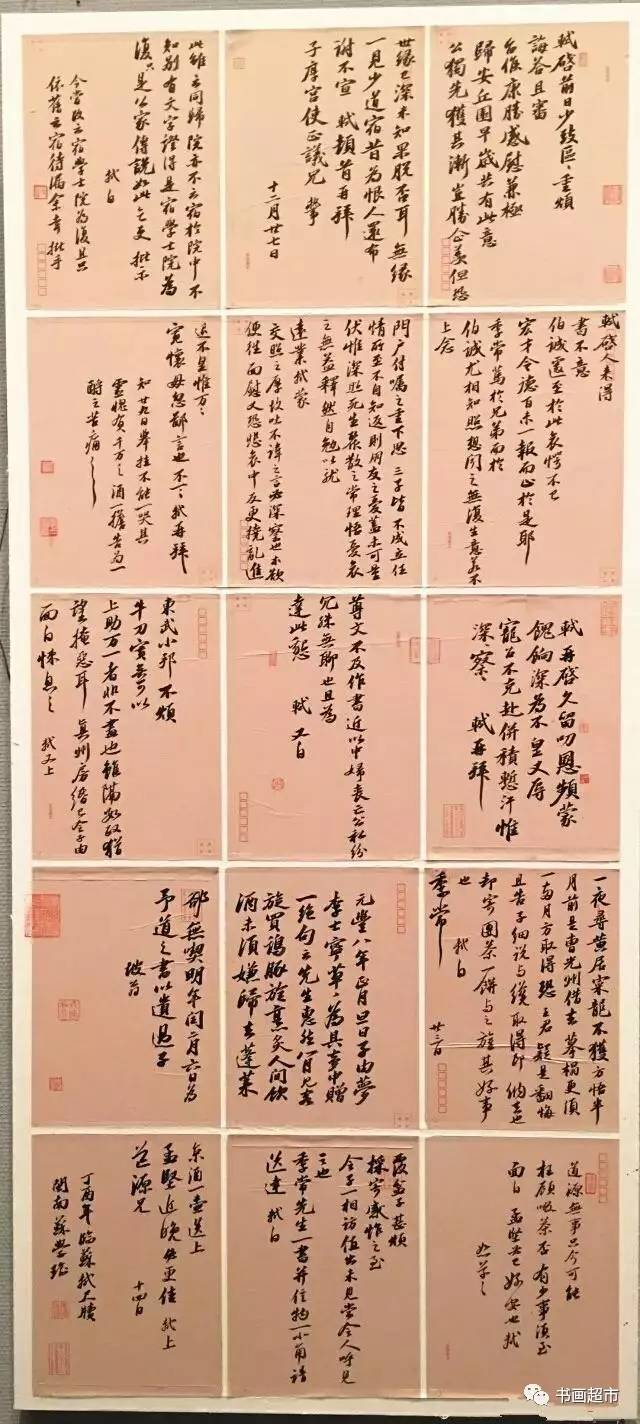 軾啓前日少致區々重煩
誨答且審
台候康勝感慰兼極
歸安丘園早歲共有此意
公獨先獲其漸豈勝企羨但恐
世緣已深未知果脫否耳無緣
一見少道宿昔為恨人還布
謝不宣軾頓首再拜
子厚宮使正議兄執事
十二月廿七日
此雖云同歸院亦不云宿於院中不
知別有文字證得是宿學士院為
復只是公家傳說如此乞更批示
軾白
今當改云宿學士院為復且只
依舊云宿待漏舍幸批手
軾啓人來得
書不意
伯誠遽至於此哀愕不已
宏才令德百未一報而止於是耶
季常篤於兄弟而於
伯誠尤相知照想聞之無復生意若不
上念
門戶付囑之重下思三子皆不成立任
情所至不自知返則朋友之憂蓋未可量
伏惟深照死生聚散之常理悟憂哀
之無益釋然自勉以就
遠業軾蒙
交照之厚故吐不諱之言必深察也本欲
便往面慰又恐悲哀中反更撓亂進
退不皇惟萬々
寬懷毋忽鄙言也不一々軾再拜
知廿九日舉挂不能一哭其
靈愧負千萬々酒一擔告為一
酹之苦痛々
軾再啓久留叨恩頻蒙
餽餉深為不皇又辱
寵召不克赴併積慙汗惟
深察々軾再拜
尊丈不及作書近以中婦喪亡公私紛
冗殊無聊也且為
達此懇軾又白
東武小邦不煩
牛刀實無可以
上助萬一者非不盡也雖隔數政猶
望掩惡耳真州房緡已令子由
面白悚息々軾又上
一夜尋黃居寀龍不獲方悟半
月前是曹光州借去摹搨更須
一兩月方取得恐王君疑是翻悔
且告子細說與纔取得即納去也
却寄團茶一餅與之旌其好事
也軾白
季常 廿三日
元豐八年正月旦日子由夢
李士寧草々為具夢中贈
一絕句云先生惠然肯見客
旋買雞豚旋烹炙人間飲
酒未須嫌歸去蓬萊
卻無喫明年閏二月六日為
予道之書以遺過子
坡翁
道源無事只今可能
枉顧啜茶否有少事須至
面白孟堅必已好安也軾
恕草々
覆盆子甚煩
採寄感怍之至
令子一相訪值出未見當令人呼見
之也
季常先生一書并信物一小角請
送達軾白
京酒一壺送上
孟堅近晚必更佳軾上
道源兄
十四日
丁酉年臨蘇軾尺牘
閩南蘇學
书画超市